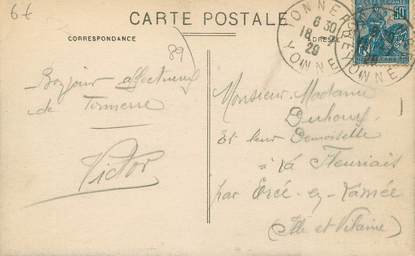 6€
CARTE POSTALE
CORRESPONDANCE
89
TONNERRE
6 30
18
29
YONNE
Bonjour affectueux
de Tonnerre
Victor
Monsieur Madame
Duhoux
Et leur Demoiselle
à La Fleuriais
par Ercé-en-Lamée
(Ille et Vilaine)